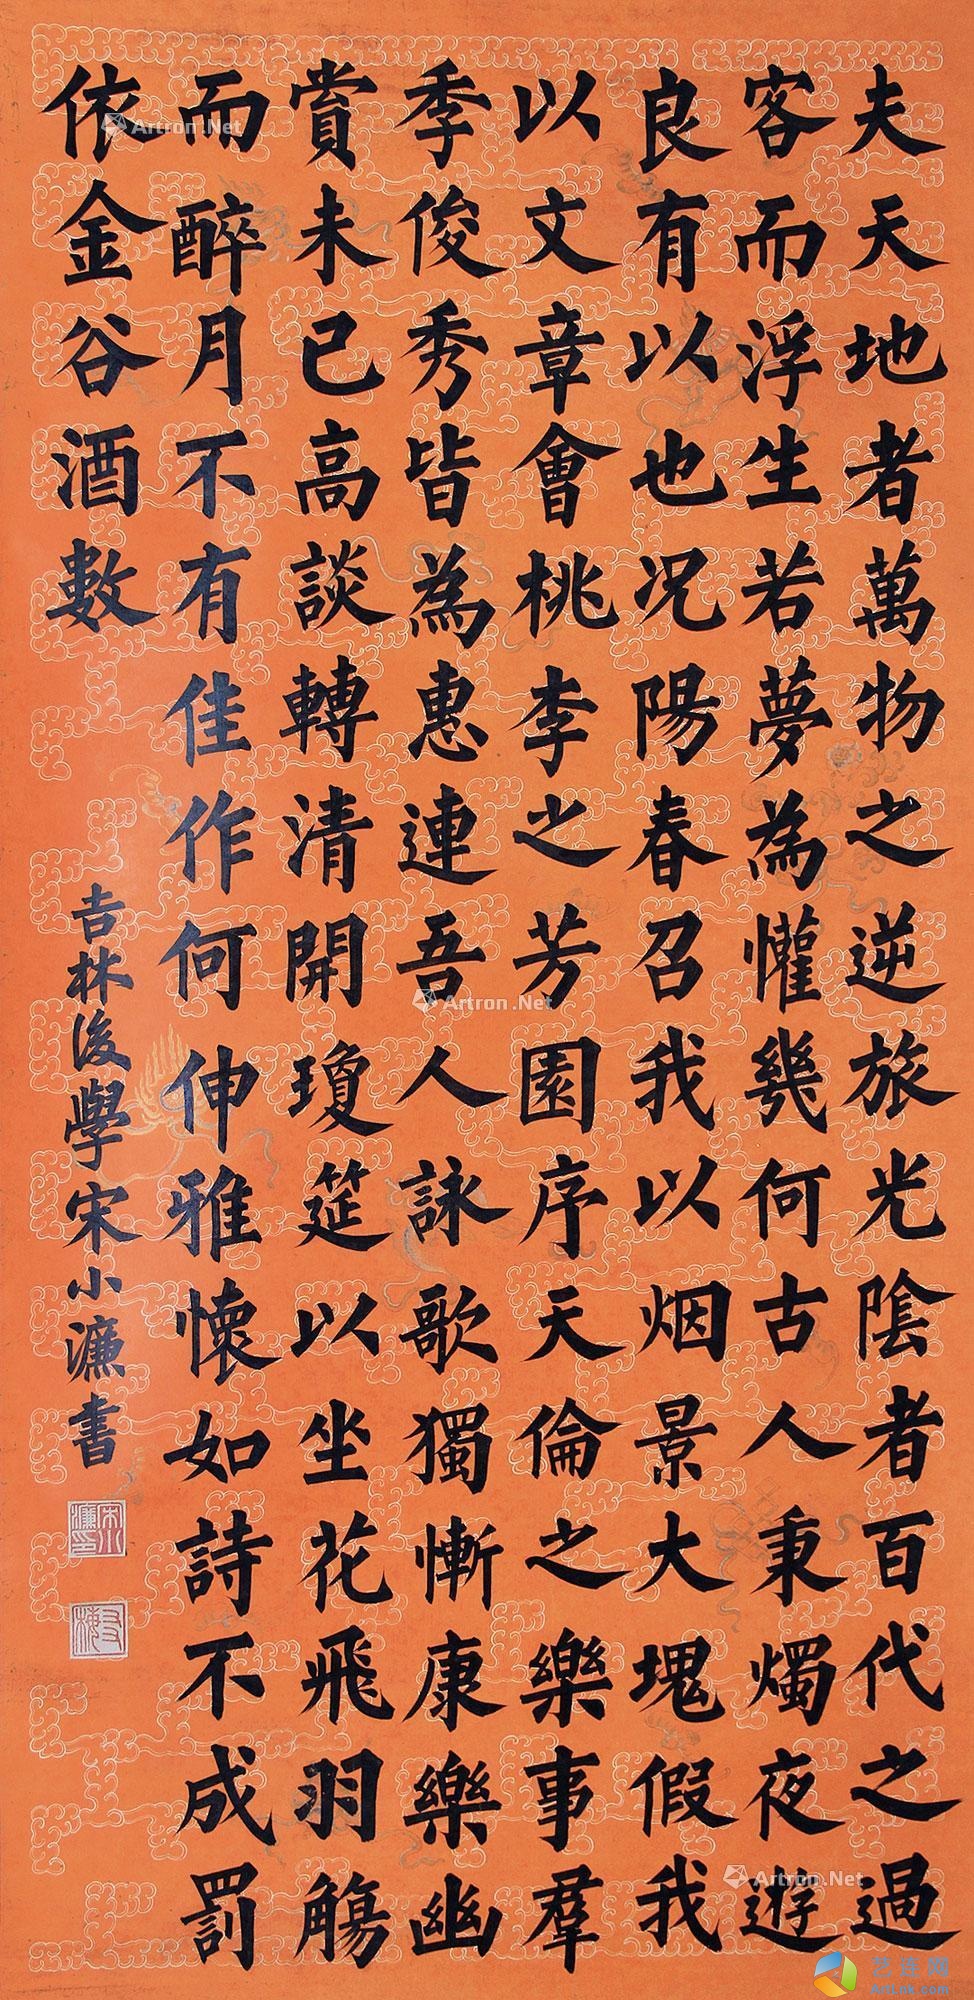 夫天地者萬物之逆旅光陰者百代之過
客而浮生若夢為懽幾何古人秉燭夜遊
良有以也况陽春召我以烟景大塊假我
以文章會桃李之芳園序天倫之樂事羣
季俊秀皆為惠連吾人詠歌獨慚康樂幽
賞未已高談轉清開瓊筵以坐花飛羽觴
而醉月不有佳作何伸雅懷如詩不成罰
依金谷酒數
吉林後學宋小濂書
宋小濂印
友梅
Artron.Net
Artron.Net
Artron.Net
艺连网
ArtLnk.com